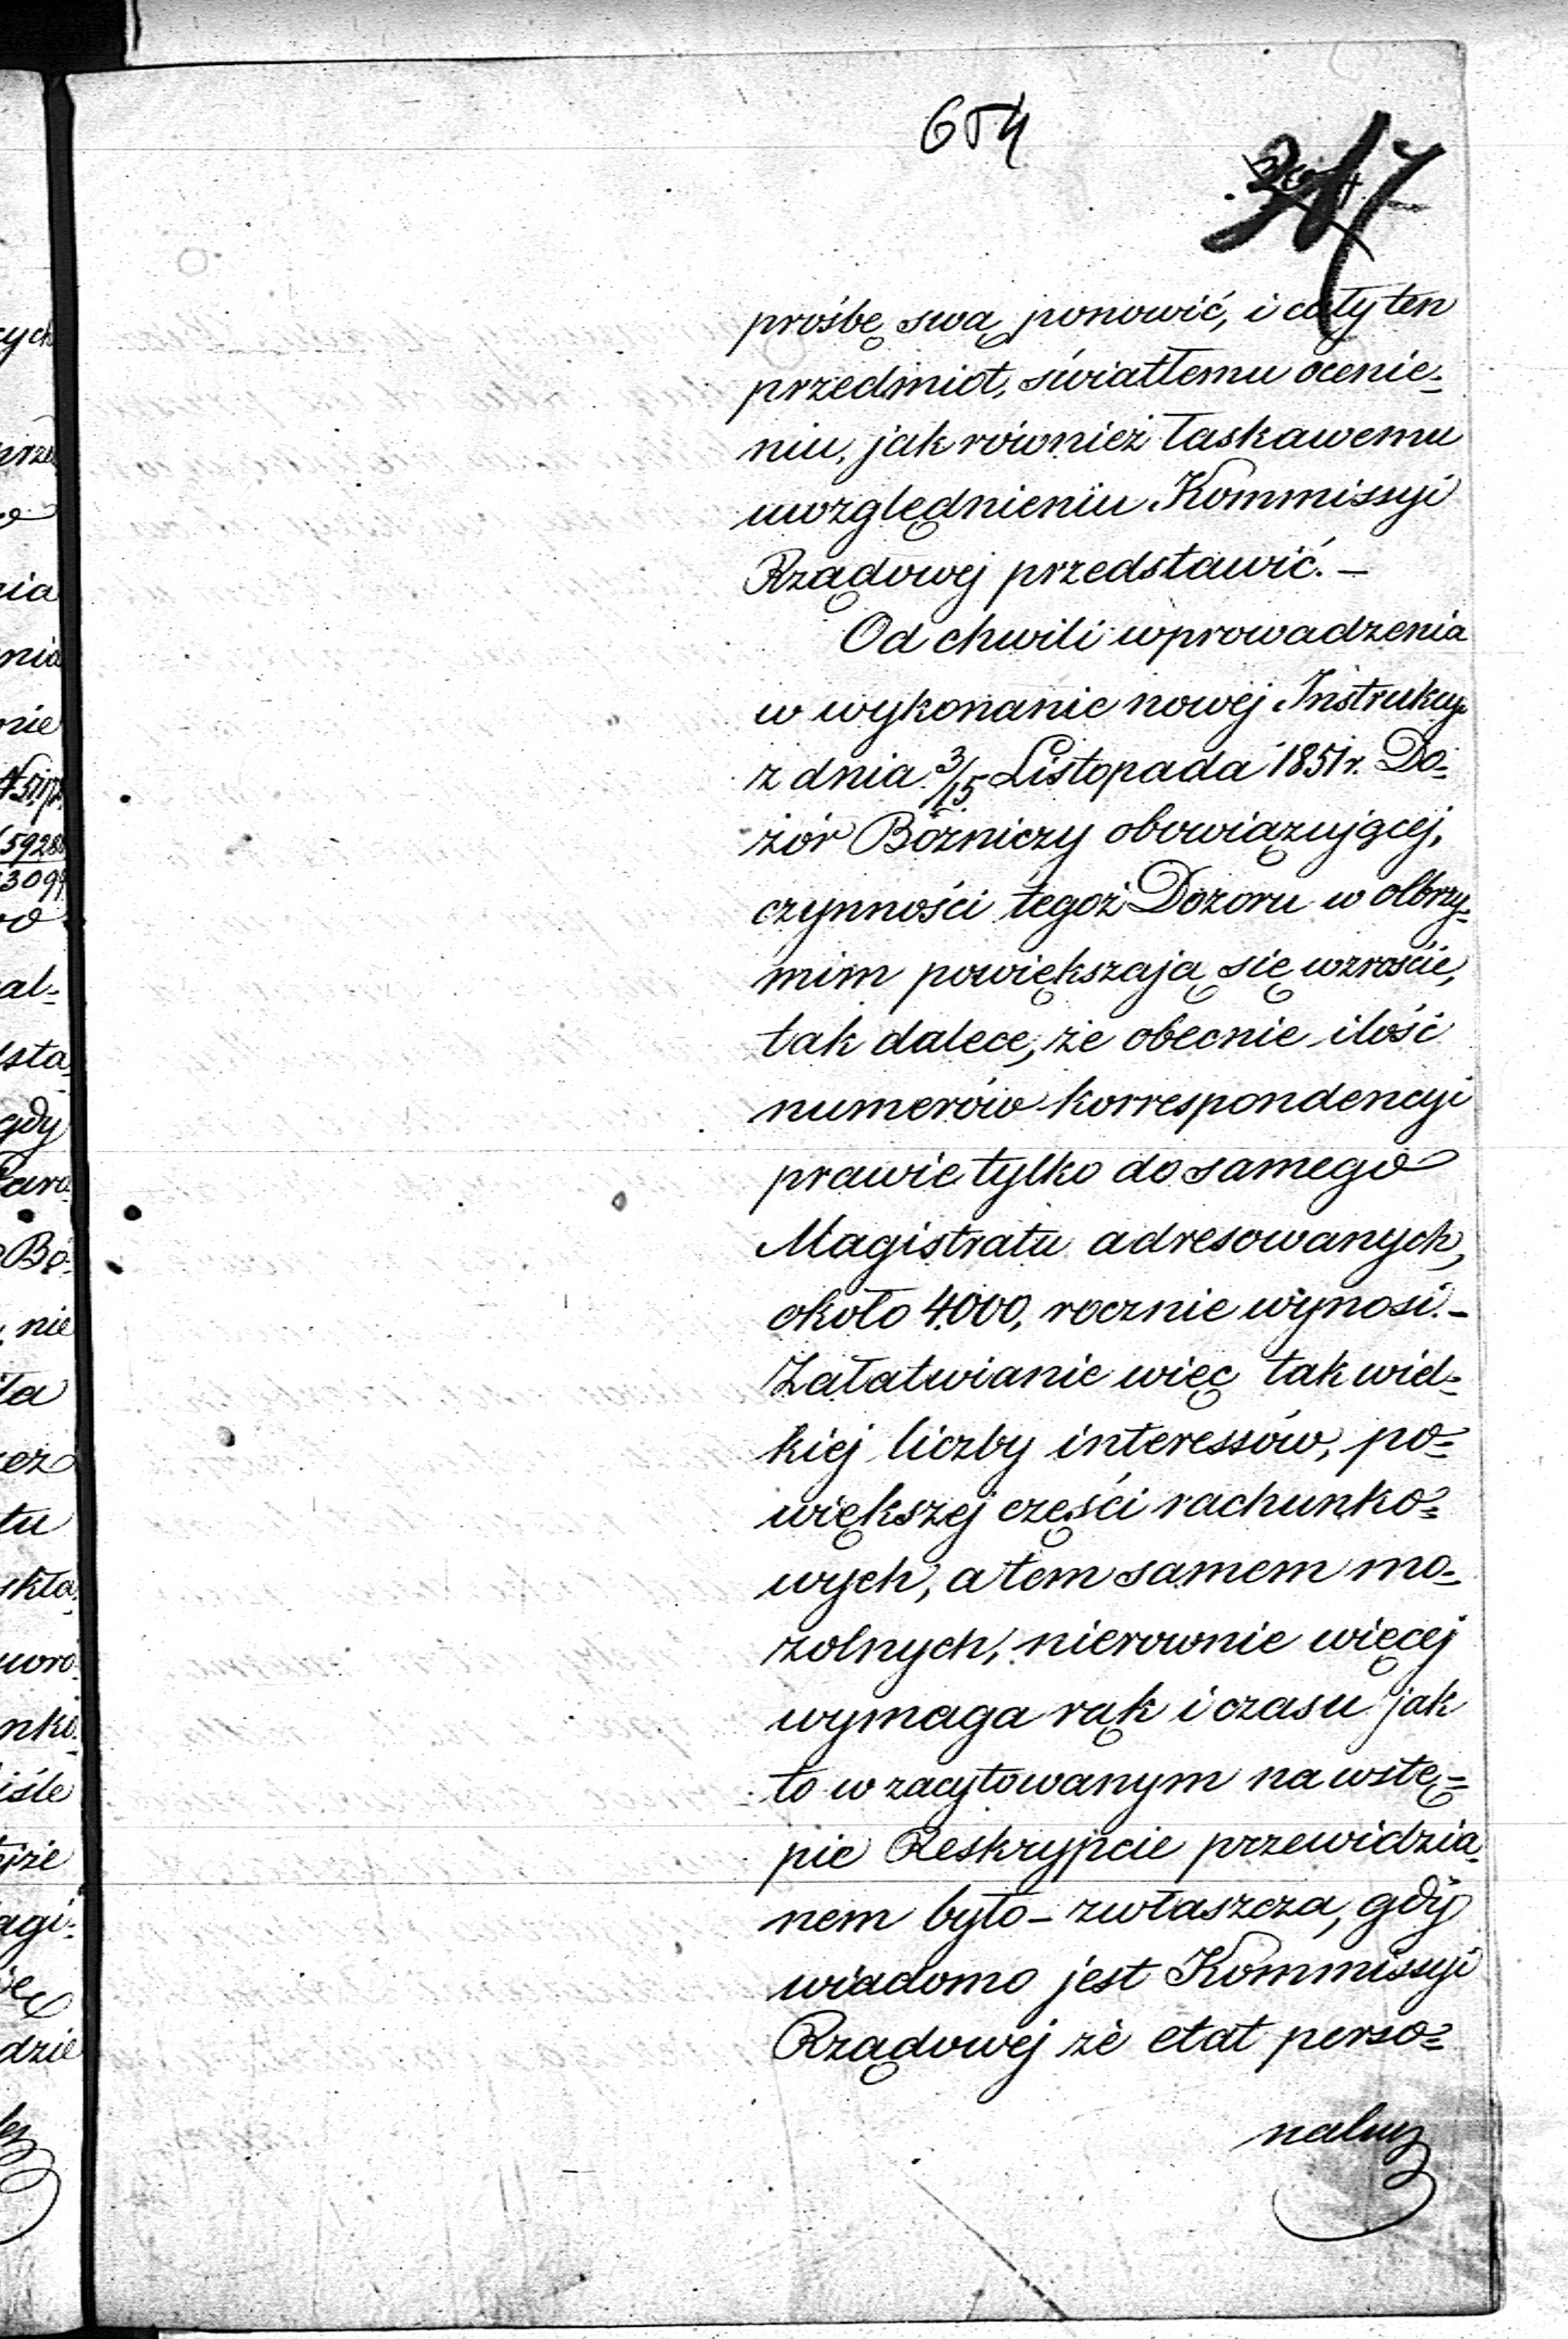 654
317
prośbę swą ponowić, i cały ten
przedmiot, światłemu ocenie=
niu, jak również łaskawemu
uwzględnieniu Kommissyi
Rządowej przedstawić.—
Od chwili wprowadzenia
w wykonanie nowej Instrukcyi
z dnia 3/15 Listopada 1851 r. Do=
zór Bożniczy obowiązującej,
czynności tegoż Dozoru w olbrzy=
mim powiększają się wzroście,
tak dalece, że obecnie ilość
numerów korrespondencyi
prawie tylko do samego
Magistratu adresowanych,
około 4000, rocznie wynosi.—
Załatwianie więc tak wiel=
kiej liczby interessów, po=
większej części rachunko=
wych, a tem samem mo=
zolnych, nierownie więcej
wymaga rąk i czasu jak
to w zacytowanym na wstę=
pie Reskrypcie przewidzia=
nem było — zwłaszcza, gdy
wiadomo jest Kommissyi
Rządowej że etat perso=
nalny